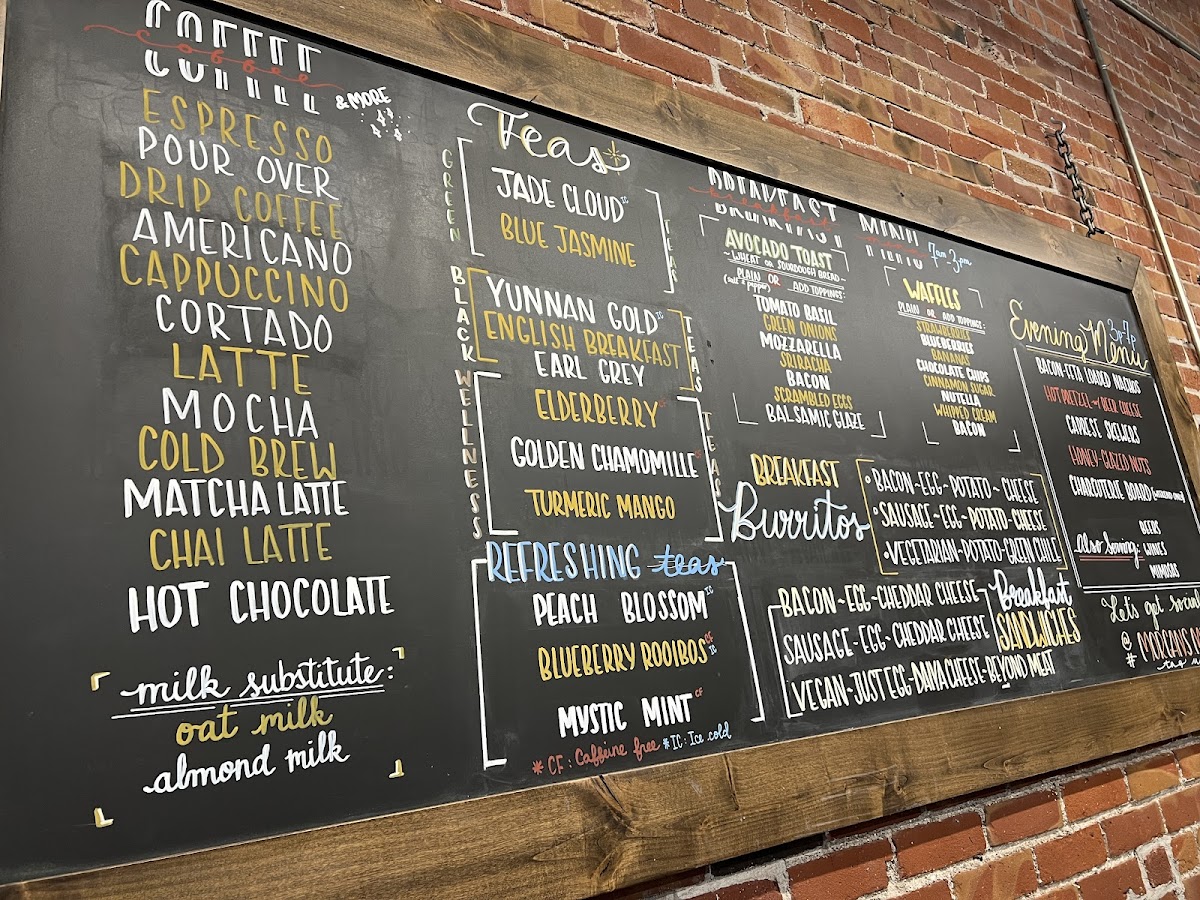 COFFEE
coffee
& MORE
ESPRESSO
POUR OVER
DRIP COFFEE
AMERICANO
CAPPUCCINO
CORTADO
LATTE
MOCHA
COLD BREW
MATCHA LATTE
CHAI LATTE
HOT CHOCOLATE
milk substitute:
oat milk
almond milk
Teas
GREEN TEAS
JADE CLOUD IC
BLUE JASMINE
BLACK TEAS
YUNNAN GOLD IC
ENGLISH BREAKFAST
EARL GREY
WELLNESS TEAS
ELDERBERRY CF
GOLDEN CHAMOMILLE CF
TURMERIC MANGO
REFRESHING teas
PEACH BLOSSOM IC
BLUEBERRY ROOIBOS CF IC
MYSTIC MINT CF
*CF: Caffeine free *IC: Ice cold
BREAKFAST MENU
breakfast menu 7am-3pm
AVOCADO TOAST
~WHEAT OR SOURDOUGH BREAD~
PLAIN OR ADD TOPPINGS:
(salt & pepper)
TOMATO BASIL
GREEN ONIONS
MOZZARELLA
SRIRACHA
BACON
SCRAMBLED EGGS
BALSAMIC GLAZE
WAFFLES
PLAIN OR ADD TOPPINGS:
STRAWBERRIES
BLUEBERRIES
BANANAS
CHOCOLATE CHIPS
CINNAMON SUGAR
NUTELLA
WHIPPED CREAM
BACON
BREAKFAST
Burritos
BACON-EGG-POTATO-CHEESE
SAUSAGE-EGG-POTATO-CHEESE
VEGETARIAN-POTATO-GREEN CHILE
Breakfast
SANDWICHES
BACON-EGG-CHEDDAR CHEESE
SAUSAGE-EGG-CHEDDAR CHEESE
VEGAN-JUST EGG-DAIYA CHEESE-BEYOND MEAT
Evening Menu 3p-7p
BACON-FETA LOADED NACHOS
HOT PRETZEL w/ BEER CHEESE
CAPRESE SKEWERS
HONEY-GLAZED NUTS
CHARCUTERIE BOARD
Also Serving:
BEERS
WINES
MIMOSAS
Let's get social
@
#